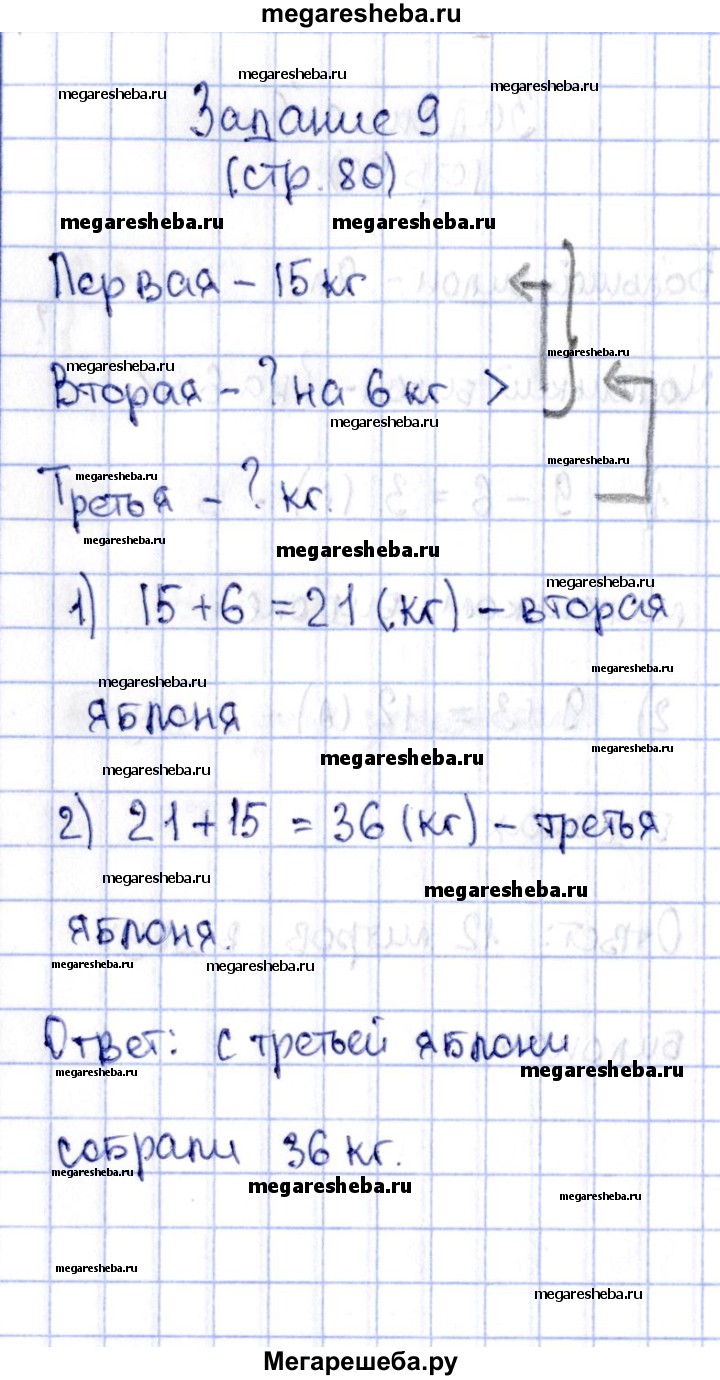 megaresheba.ru
megaresheba.ru
megaresheba.ru
megaresheba.ru
Задание 9
(стр. 80)
megaresheba.ru megaresheba.ru
Первая – 15 кг
megaresheba.ru
megaresheba.ru
Вторая – ? на 6 кг >
megaresheba.ru
megaresheba.ru
megaresheba.ru
Третья – ? кг.
megaresheba.ru
megaresheba.ru
megaresheba.ru
1) 15 + 6 = 21 (кг) – вторая
megaresheba.ru
megaresheba.ru
яблоня
megaresheba.ru
megaresheba.ru
megaresheba.ru
2) 21 + 15 = 36 (кг) – третья
megaresheba.ru
megaresheba.ru
яблоня.
megaresheba.ru megaresheba.ru
Ответ: с третьей яблони
megaresheba.ru
megaresheba.ru
собрали 36 кг.
megaresheba.ru
megaresheba.ru
megaresheba.ru
megaresheba.ru
megaresheba.ru
Мегарешеба.ру